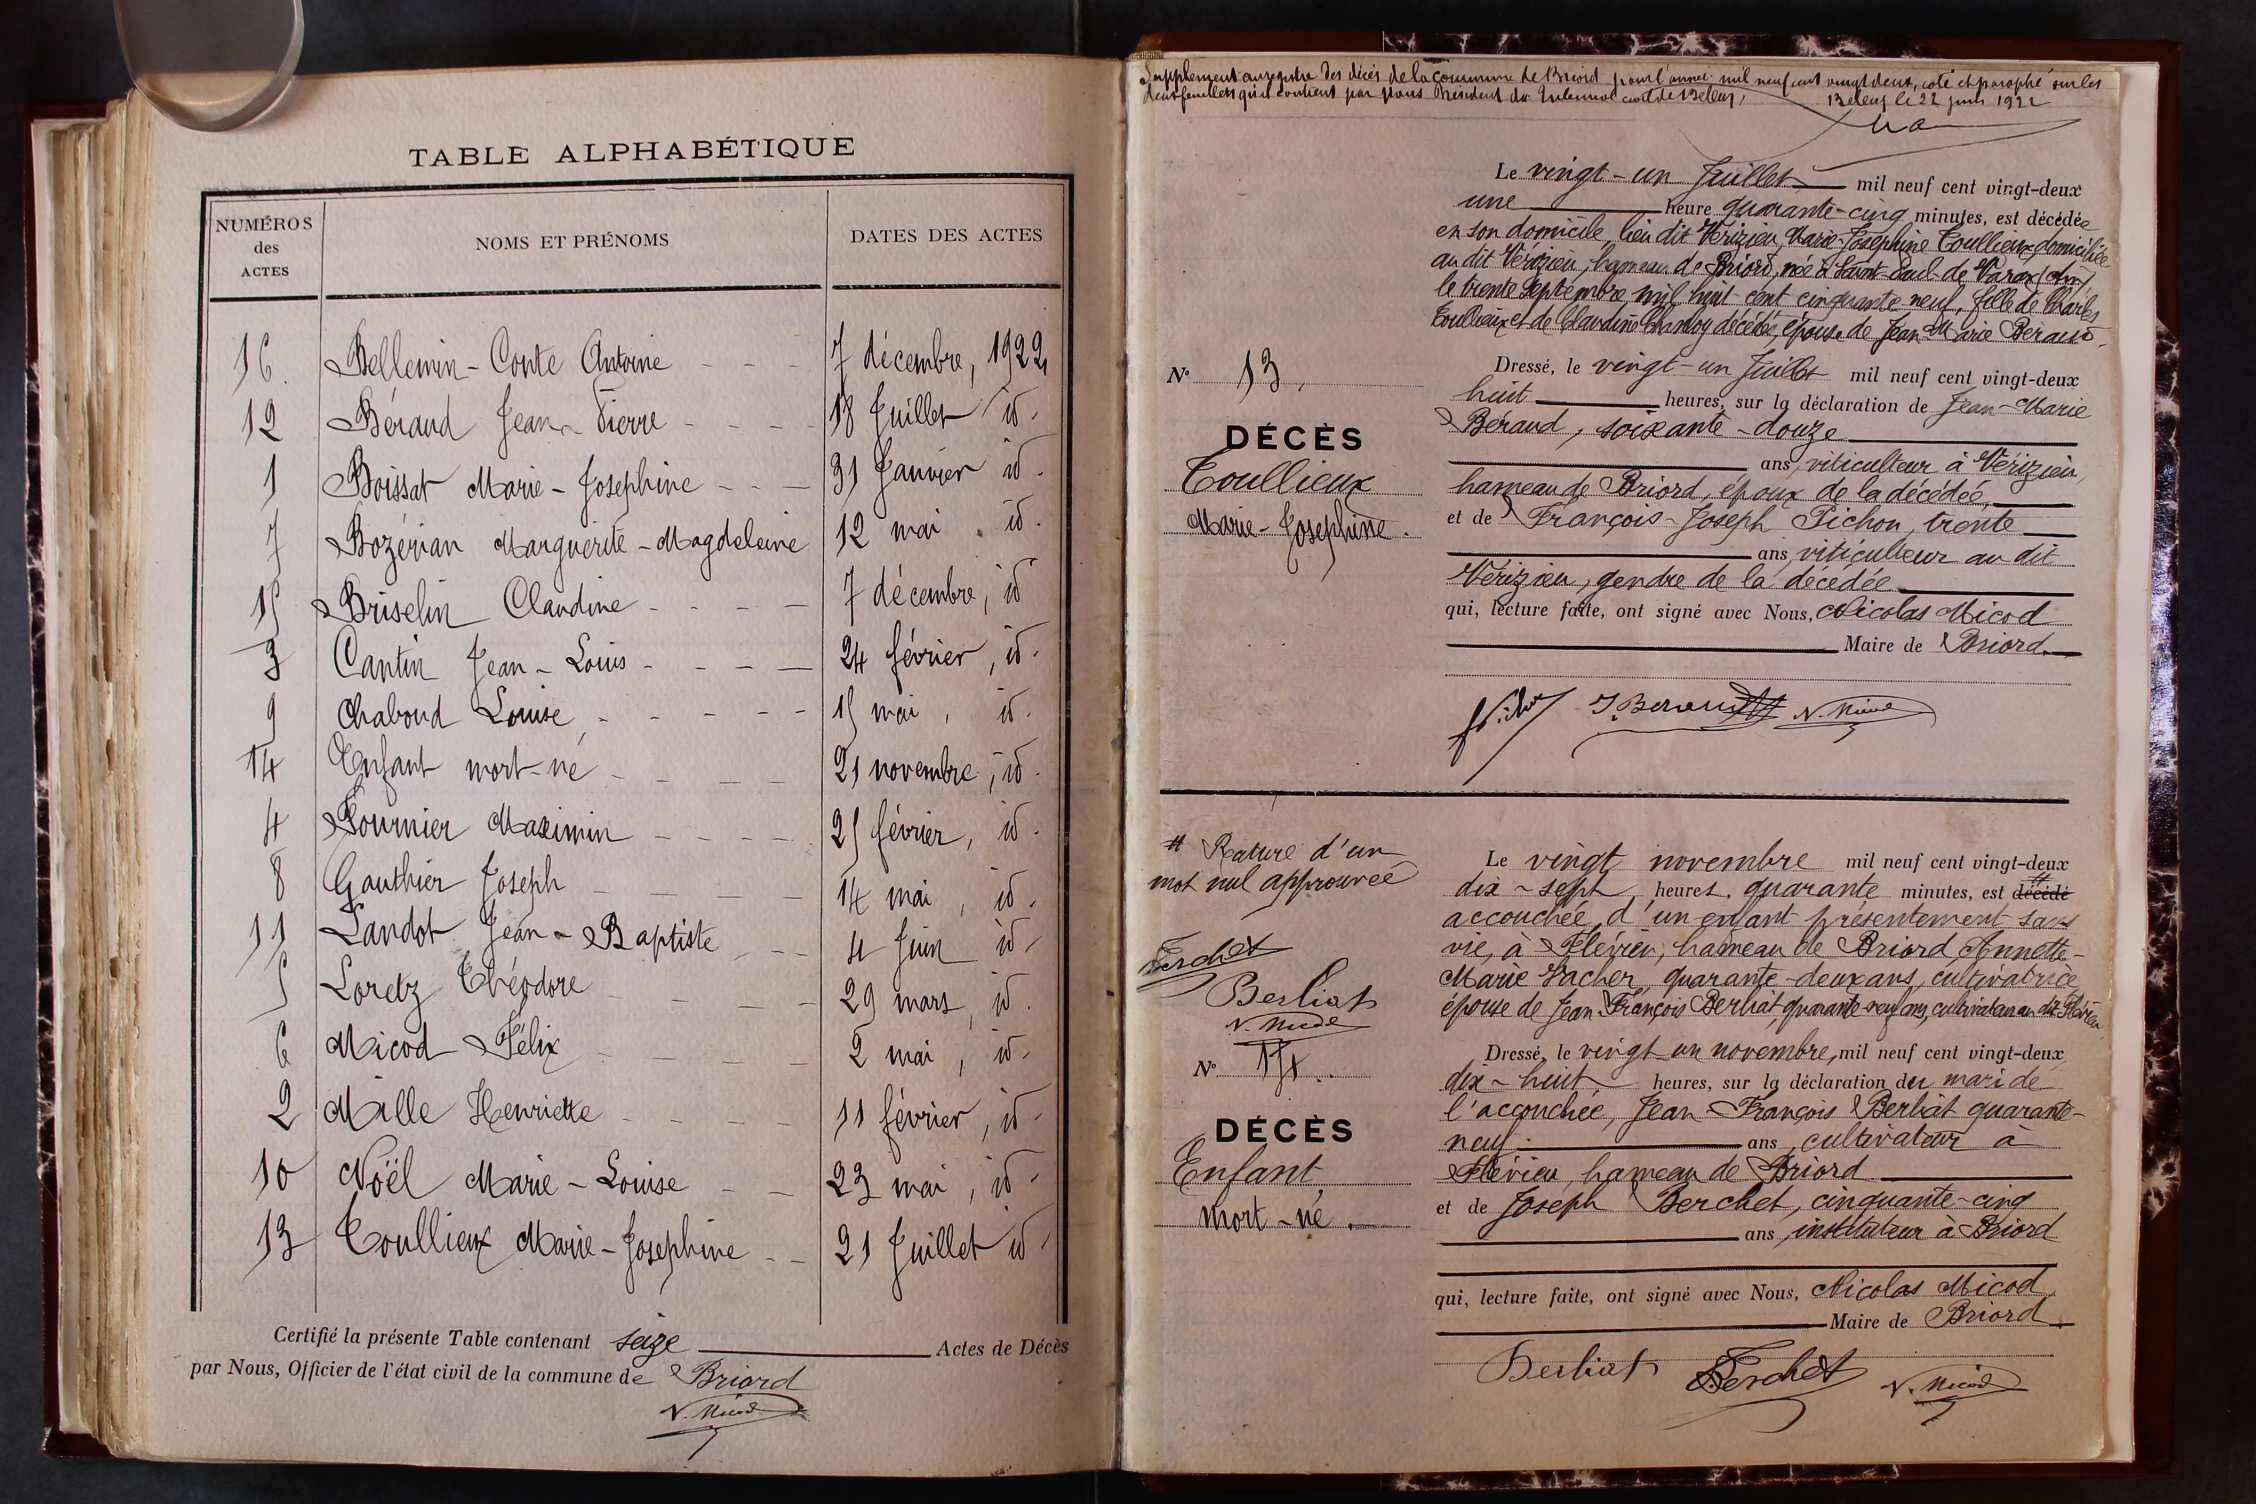 TABLE ALPHABÉTIQUE
NUMÉROS des ACTES
NOMS ET PRÉNOMS
DATES DES ACTES
16. Bellemin-Conte Antoine 7 décembre, 1922
12 Béraud Jean-Pierre 18 Juillet id.
1 Boissat Marie-Josephine 31 Janvier id.
7 Bozérian Marguerite-Magdeleine 12 mai id.
15 Briselin Claudine 7 décembre, id
3 Cantin Jean-Louis 24 février, id.
9 Chaboud Louise 15 mai, id.
14 Enfant mort-né 21 novembre, id.
4 Fournier Maximin 25 février, id.
8 Gauthier Joseph 14 mai, id.
11 Landot Jean-Baptiste 4 Juin id.
5 Loretz Théodore 29 mars, id.
6 Micod Félix 2 mai, id.
2 Mille Henriette 11 février, id.
10 Noël Marie-Louise 23 mai, id.
13 Toullieux Marie-Josephine 21 Juillet id.
Certifié la présente Table contenant seize Actes de Décès
par Nous, Officier de l'état civil de la commune de Briord
N. Micod
Supplément au registre des décès de la commune de Briord pour l'année mil neuf cent vingt deux, coté et paraphé sur les
deux feuillets qu'il contient par Nous Président du Tribunal civil de Belley,
Belley le 22 juin 1922
N° 13.
DÉCÈS
Toullieux
Marie-Josephine.
Le vingt-un Juillet mil neuf cent vingt-deux
une heure quarante-cinq minutes, est décédée
en son domicile, lieu dit Vérizieu, Marie-Josephine Toullieux, domiciliée
au dit Vérizieu, hameau de Briord, née à Saint-Paul-de-Varax (Ain),
le trente Septembre mil huit cent cinquante-neuf, fille de Charles
Toullieux et de Claudine décédés, épouse de Jean-Marie Béraud.
Dressé, le vingt-un Juillet mil neuf cent vingt-deux
huit heures, sur la déclaration de Jean-Marie
Béraud, soixante-douze
ans, viticulteur à Vérizieu,
hameau de Briord, époux de la décédée,
et de François-Joseph Pichon, trente
ans, viticulteur au dit
Vérizieu, gendre de la décédée
qui, lecture faite, ont signé avec Nous, Nicolas Micod
Maire de Briord.
J. Beraud N. Micod
# Rature d'un
mot nul approuvée
Berchet
Berliat
N. Micod
N° 14.
DÉCÈS
Enfant
mort-né.
Le vingt novembre mil neuf cent vingt-deux
dix-sept heures quarante minutes, est décédé #
accouchée d'un enfant présentement sans
vie, à Flévieu, hameau de Briord, Annette-
Marie Vacher, quarante-deux ans, cultivatrice,
épouse de Jean-François Berliat, quarante-neuf ans, cultivateur au dit Flévieu
Dressé, le vingt-un novembre, mil neuf cent vingt-deux
dix-huit heures, sur la déclaration du mari de
l'accouchée, Jean-François Berliat quarante-
neuf ans, cultivateur à
Flévieu, hameau de Briord
et de Joseph Berchet, cinquante-cinq
ans, instituteur à Briord
qui, lecture faite, ont signé avec Nous, Nicolas Micod,
Maire de Briord.
Berliat Berchet N. Micod